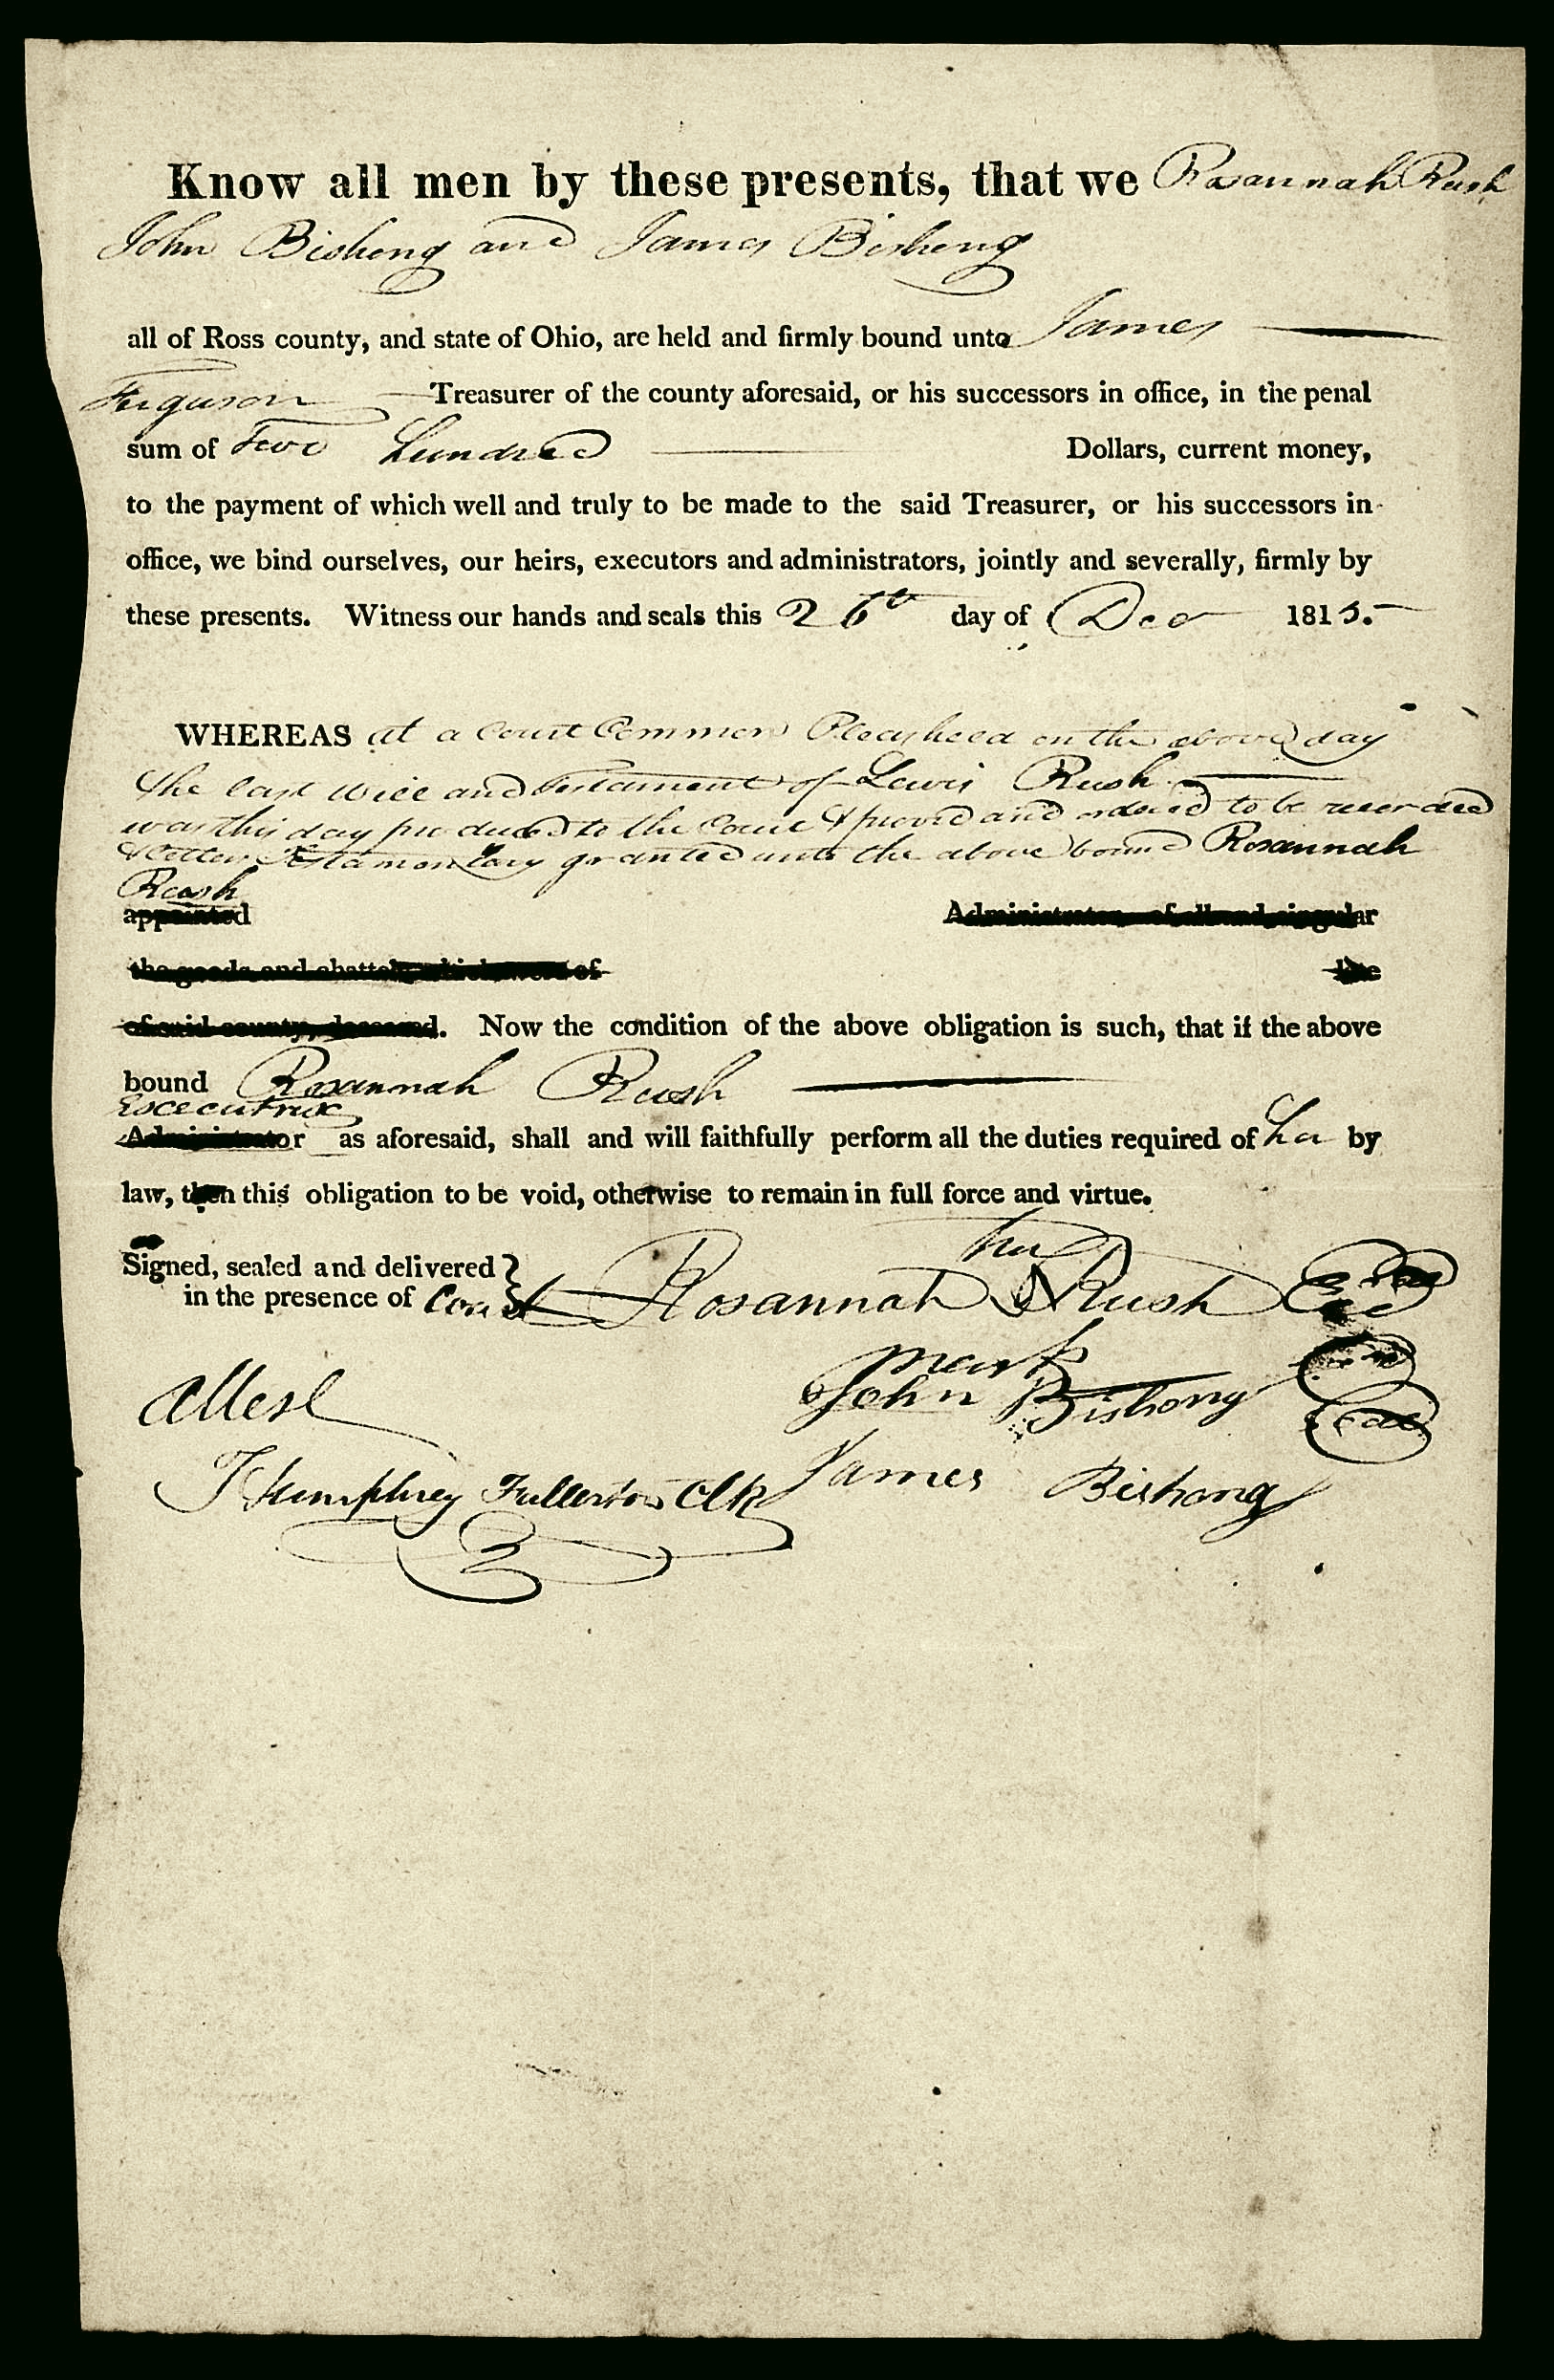 Know all men by these presents, that we Rosannah Rush
John Bishong and James Bishong
all of Ross county, and state of Ohio, are held and firmly bound unto James
Ferguson Treasurer of the county aforesaid, or his successors in office, in the penal
sum of Two hundred Dollars, current money,
to the payment of which well and truly to be made to the said Treasurer, or his successors in
office, we bind ourselves, our heirs, executors and administrators, jointly and severally, firmly by
these presents. Witness our hands and seals this 26th day of Dec 1815.
WHEREAS at a Court Common Pleas held on the above day
the last Will and Testament of Lewis Rush
was this day produced to the Court & proved and ordered to be recorded
& letters Testamentary granted unto the above bound Rosannah
Rush
appointed Administrator of all and singular
the goods and chattels, which were of late
of said county, deceased. Now the condition of the above obligation is such, that if the above
bound Rosannah Rush
Excecutrix
Administrator as aforesaid, shall and will faithfully perform all the duties required of her by
law, then this obligation to be void, otherwise to remain in full force and virtue.
Signed, sealed and delivered } her
in the presence of Court Rosannah Rush Seal
mark
Attest John Bishong Seal
T Humphrey Fullerton Clk James Bishong Seal